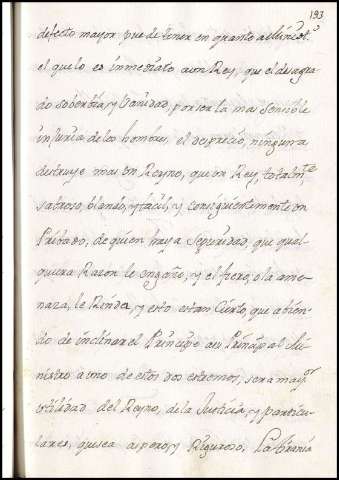 193
defecto mayor puede tener en quanto a
el que lo es inmediato a un Rey, que el desagra-
do soberbia, y Vanidad, por ser la mas sensible
injuria de los hombres, el desprecio, ninguna
destruye mas un Reyno, que un Rey, totalmte
sabroso, blando, y facil, y consiguientemente un
Pribado, de quien haya Seguridad, que qual-
quiera Razon le engañe, y el fiero, o la ame-
naza, le Rinda, y esto es tan Cierto, que abien-
do de inclinar el Principe a su Prinzipal Mi-
nistro a uno de estos dos estremos, sera mayor
utilidad del Reyno, de la Justicia, y particu-
lares, que sea aspero, y Riguroso, La tirania